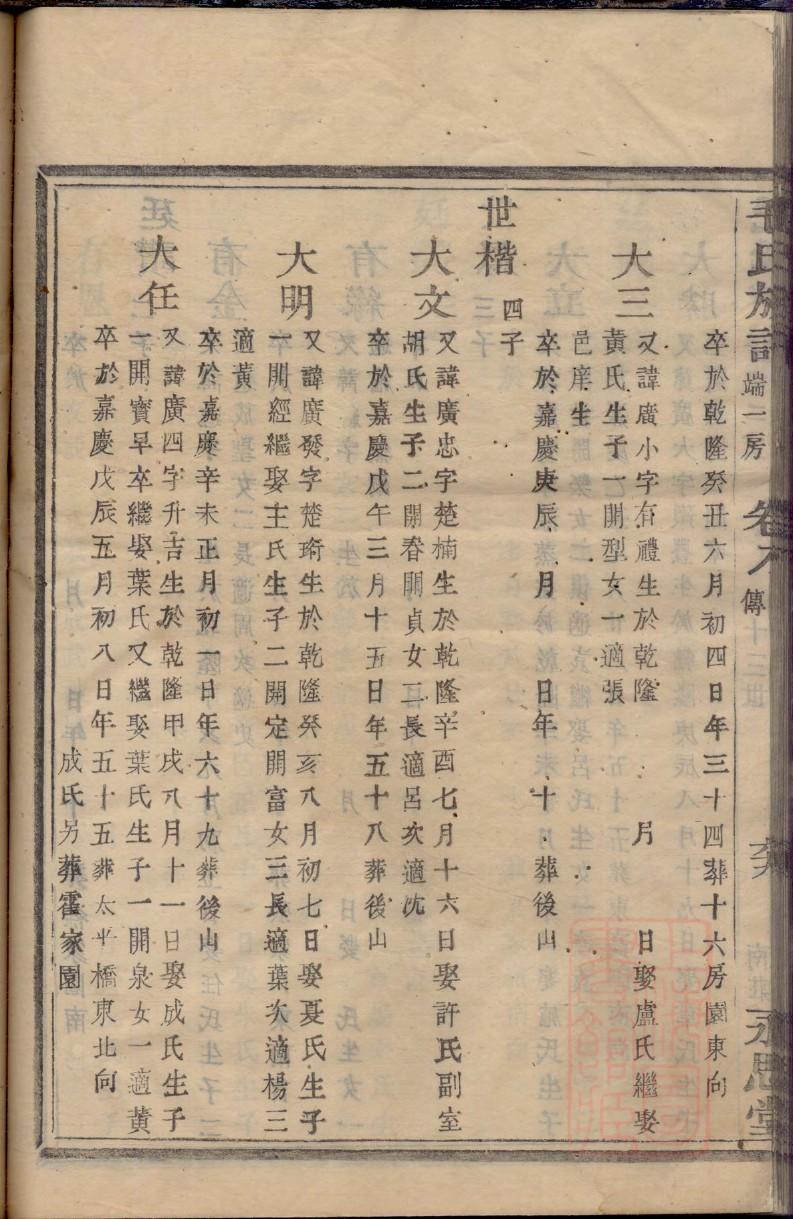 毛氏族譜 端一房 卷八 傳 十三世 六 永思堂
卒於乾隆癸丑六月初四日年三十四葬十六房園東向
大三
又諱廣小字有禮生於乾隆 月 日娶盧氏繼娶
黃氏生子一開型女一適張
邑庠生
卒於嘉慶庚辰 月 日年 十 葬後山
世楷 四子
大文
又諱廣忠字楚楠生於乾隆辛酉七月十六日娶許氏副室
胡氏生子二開春開貞女二長適呂次適沈
卒於嘉慶戊午三月十五日年五十八葬後山
大明
又諱廣發字楚琦生於乾隆癸亥八月初七日娶夏氏生子
一開經繼娶王氏生子二開定開富女三長適葉次適楊三
適黃
卒於嘉慶辛未正月初一日年六十九葬後山
大任
又諱廣四字升吉生於乾隆甲戌八月十一日娶成氏生子
一開寶早卒繼娶葉氏又繼娶葉氏生子一開泉女一適黃
卒於嘉慶戊辰五月初八日年五十五葬太平橋東北向
成氏另葬霍家園